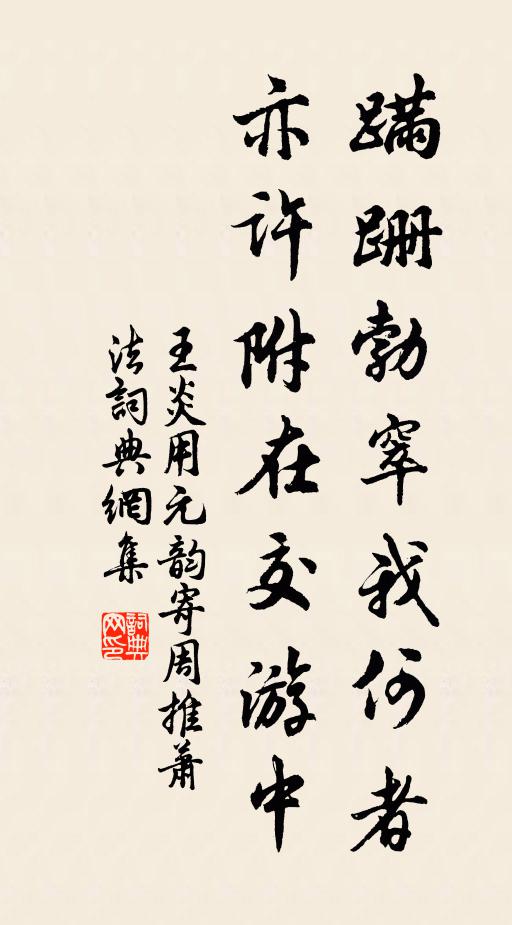 蹣跚勃窣我何者
亦许附在交游中
王炎用元韵寄周推萧
法詞典網集
詞典网印